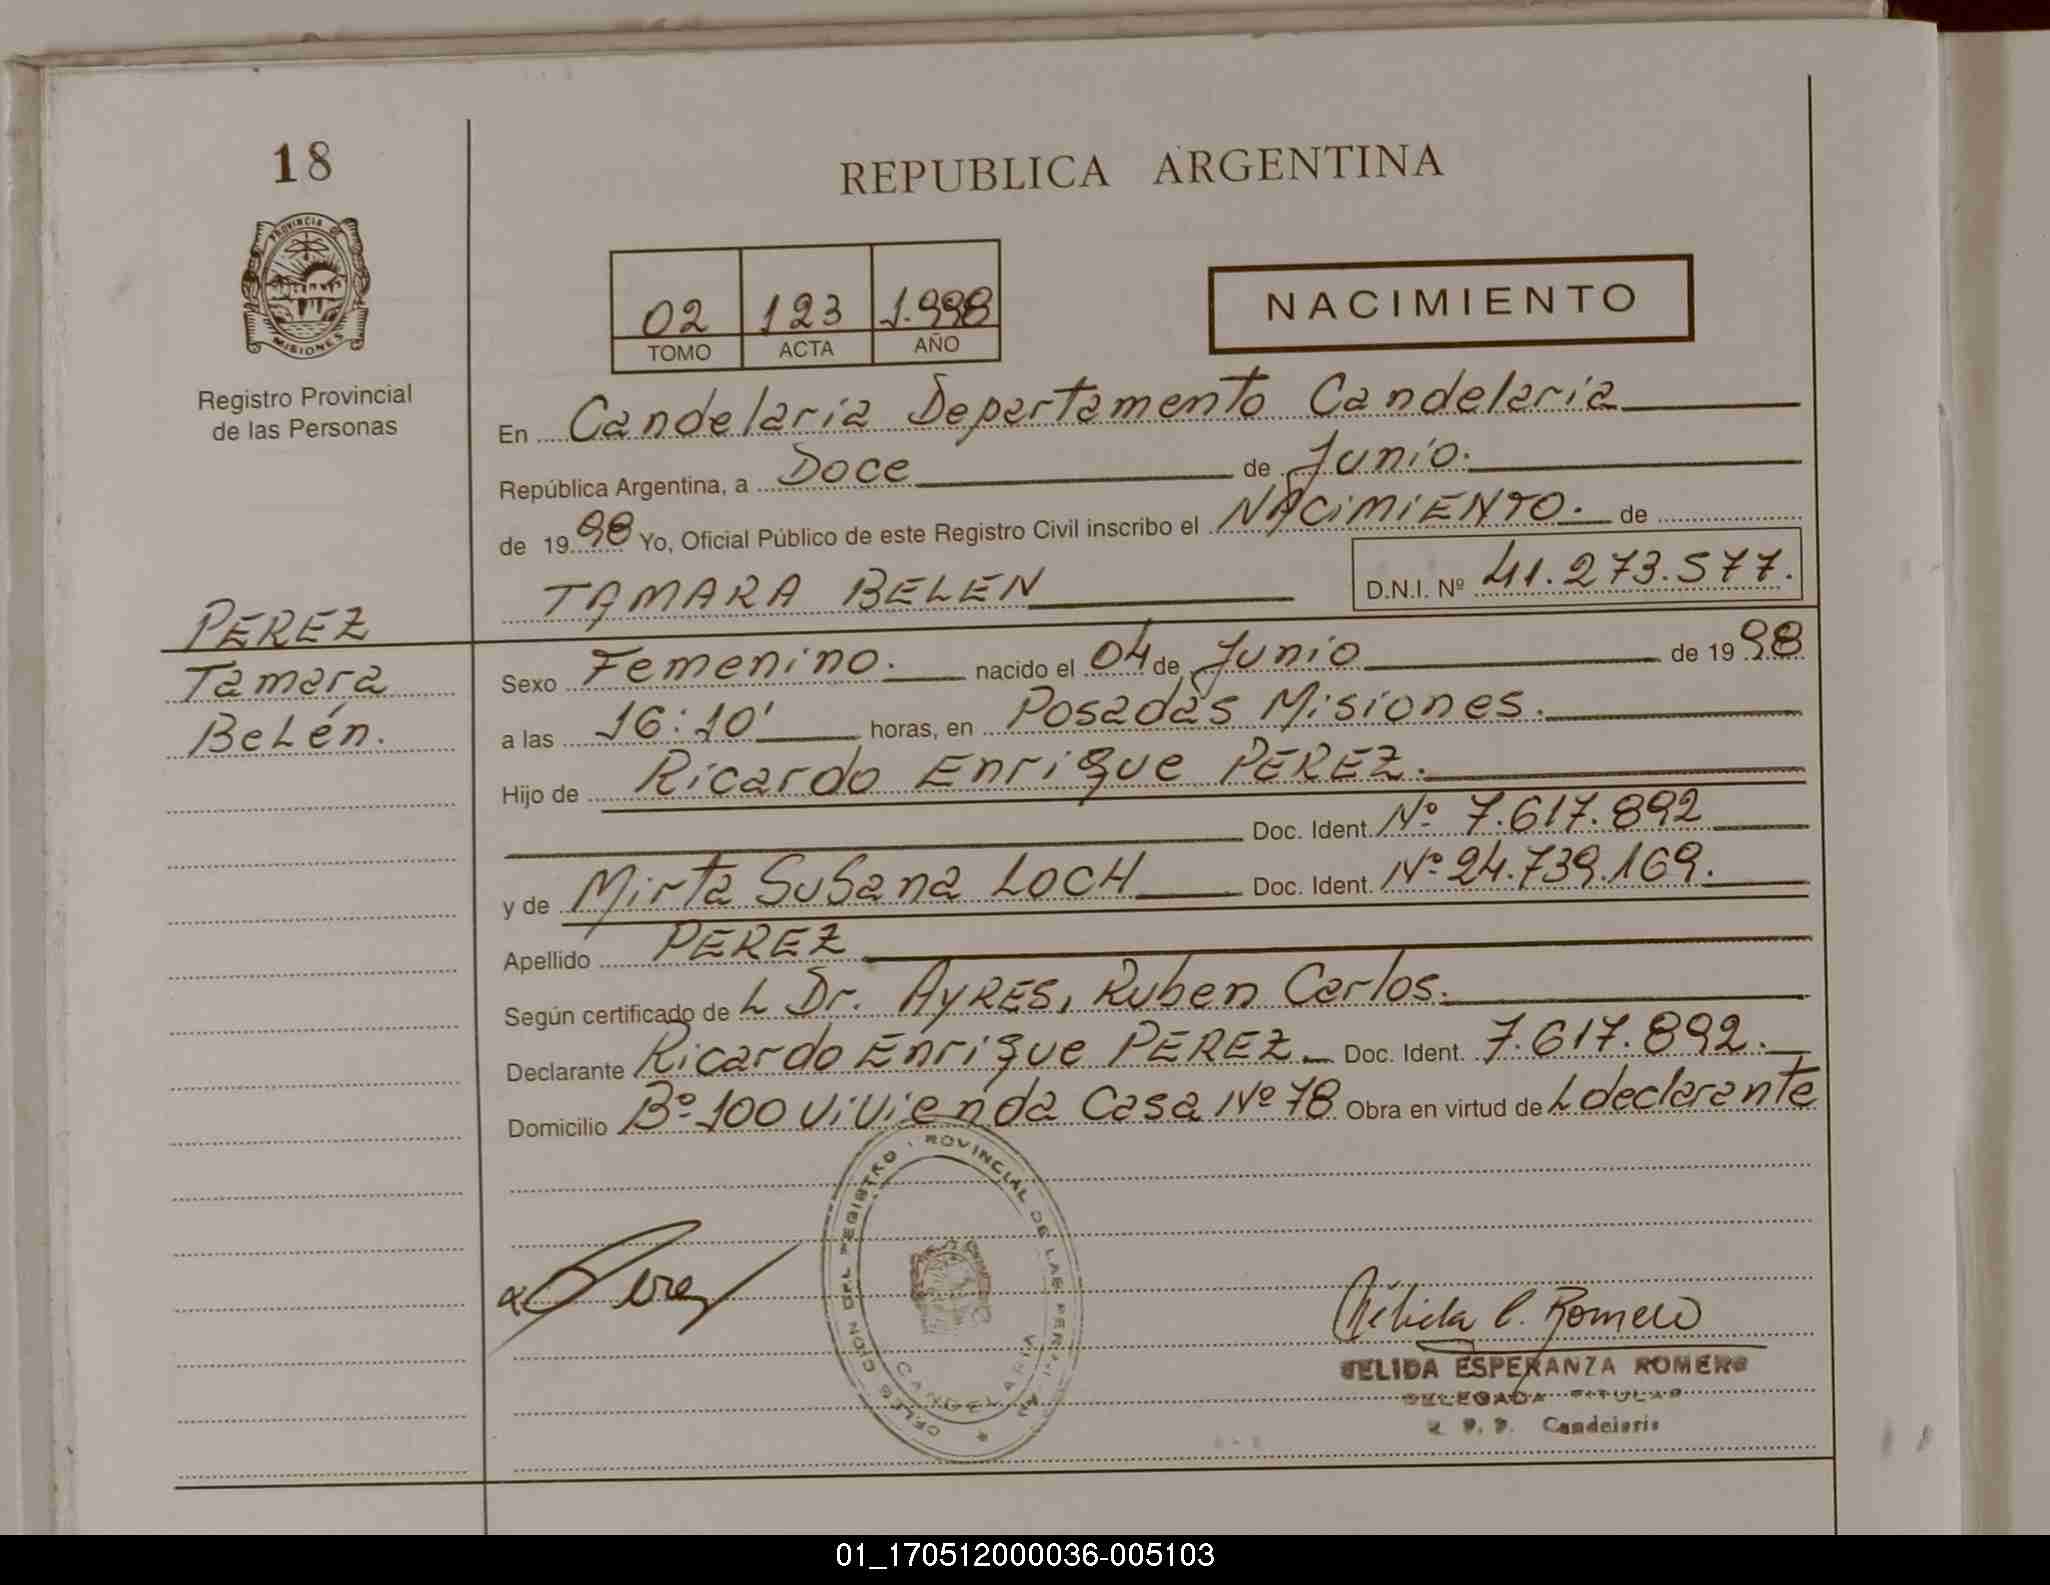 18
REPUBLICA ARGENTINA
PROVINCIA DE
MISIONES
Registro Provincial
de las Personas
02 123 1.998
TOMO ACTA AÑO
NACIMIENTO
En Candelaria Departamento Candelaria
República Argentina, a Doce de Junio.
de 1998 Yo, Oficial Público de este Registro Civil inscribo el NACIMIENTO. de
TAMARA BELEN D.N.I. Nº 41.273.577.
PEREZ
Tamara
Belén.
Sexo Femenino. nacido el 04 de Junio de 1998
a las 16:10' horas, en Posadas Misiones.
Hijo de Ricardo Enrique PEREZ.
Doc. Ident. Nº 7.617.892
y de Mirta Susana LOCH Doc. Ident. Nº 24.739.169.
Apellido PEREZ
Según certificado de L Dr. AyRES, Ruben Carlos.
Declarante Ricardo Enrique PEREZ Doc. Ident. 7.617.892.
Domicilio Bº 100 vivienda Casa Nº 78 Obra en virtud de L declarante
REGISTRO PROVINCIAL DE LAS
CANDELARIA
Nélida E. Romero
NELIDA ESPERANZA ROMERO
DELEGADA TITULAR
R. P. P. Candelaria
01_170512000036-005103